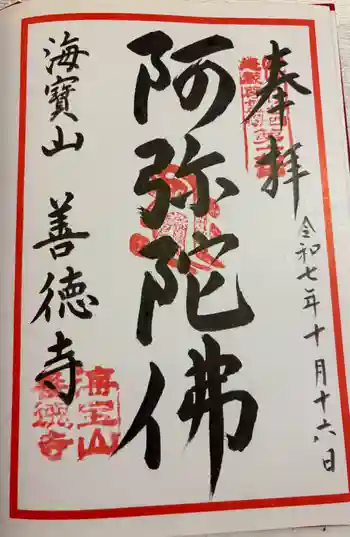 奉拝
令和七年十月十六日
阿弥陀佛
海寶山 善徳寺
海宝山
善徳寺